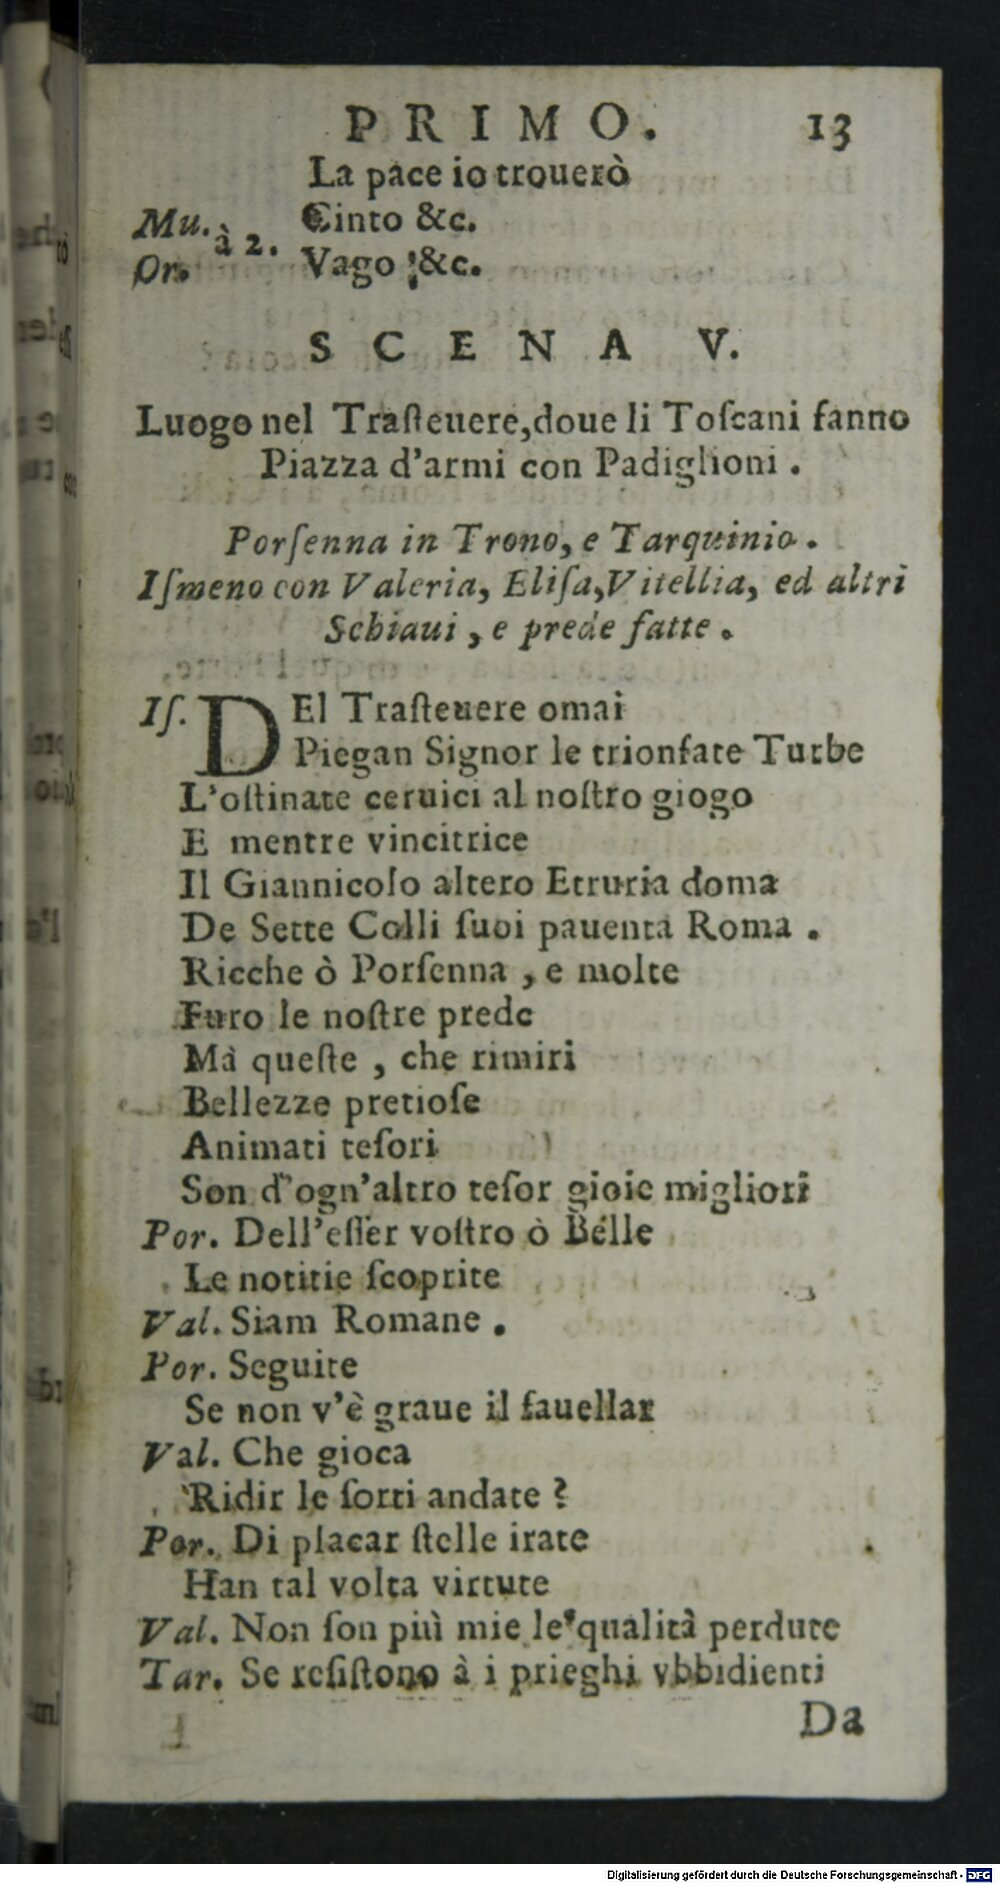 PRIMO. 13
La pace io trouerò
Mu. à 2. Cinto &c.
Or. Vago &c.
SCENA V.
Luogo nel Traſteuere, doue li Toſcani fanno
Piazza d'armi con Padiglioni.
Porſenna in Trono, e Tarquinio.
Iſmeno con Valeria, Eliſa, Vitellia, ed altri
Schiaui, e prede fatte.
Iſ. DEl Traſteuere omai
Piegan Signor le trionfate Turbe
L'oſtinate ceruici al noſtro giogo
E mentre vincitrice
Il Giannicolo altero Etruria doma
De Sette Colli ſuoi pauenta Roma.
Ricche ò Porſenna, e molte
Furo le noſtre prede
Mà queſte, che rimiri
Bellezze pretioſe
Animati teſori
Son d'ogn'altro teſor gioie migliori
Por. Dell'eſſer voſtro ò Belle
Le notitie ſcoprite
Val. Siam Romane.
Por. Seguite
Se non v'è graue il fauellar
Val. Che gioca
Ridir le ſorti andate?
Por. Di placar ſtelle irate
Han tal volta virtute
Val. Non ſon più mie le qualità perdute
Tar. Se reſiſtono à i prieghi vbbidienti
Da
Digitalisierung gefördert durch die Deutsche Forschungsgemeinschaft - DFG